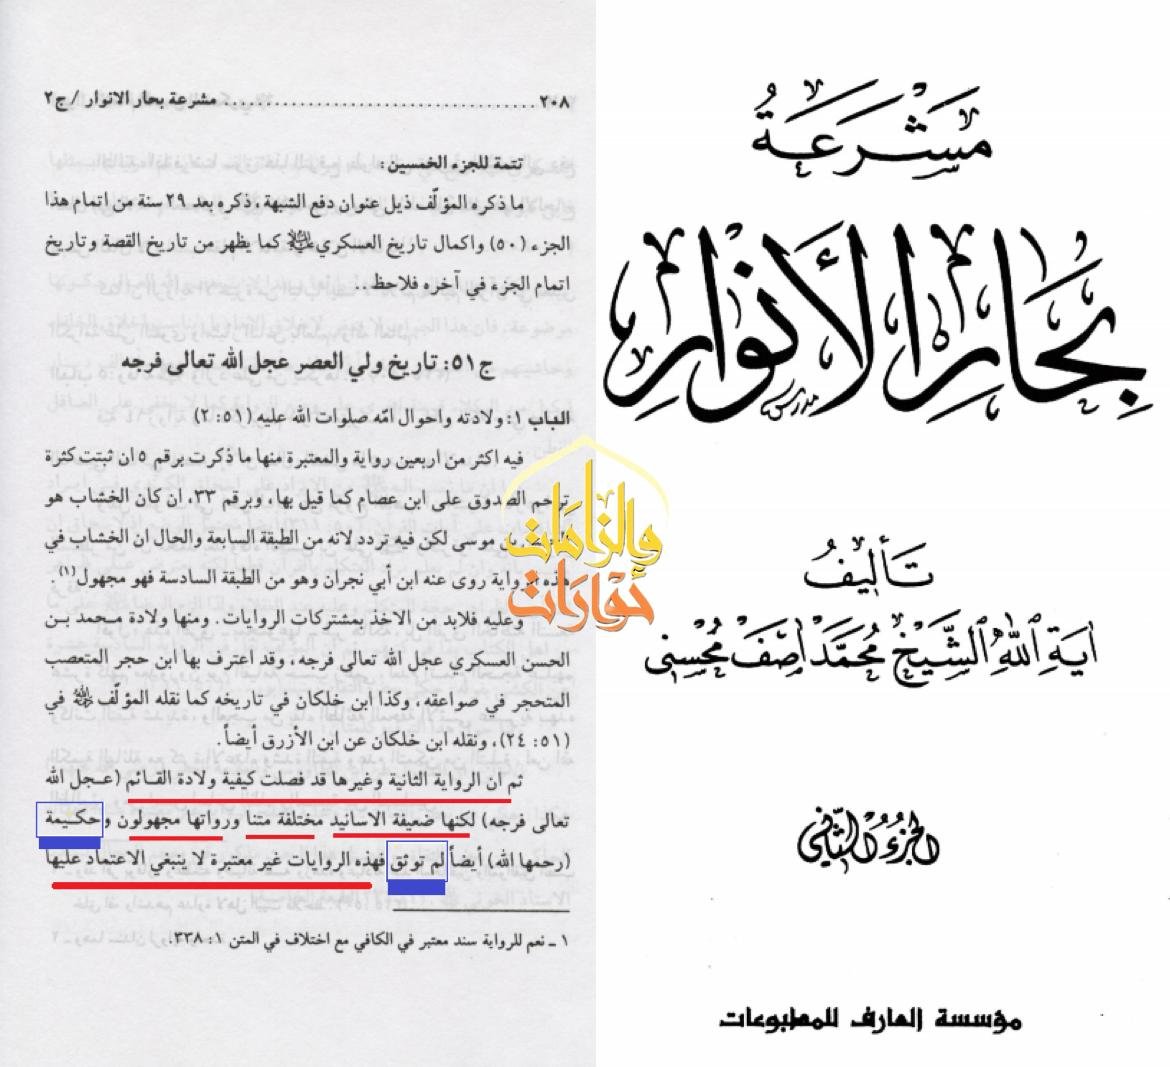 ٢٠٨ ........................................ مشرعة بحار الانوار / ج٢
تتمة للجزء الخمسين:
ما ذكره المؤلّف ذيل عنوان دفع الشبهة، ذكره بعد ٢٩ سنة من اتمام هذا
الجزء (٥٠) واكمال تاريخ العسكري كما يظهر من تاريخ القصة وتاريخ
اتمام الجزء في آخره فلاحظ..
ج٥١: تاريخ ولي العصر عجل الله تعالى فرجه
الباب ١: ولادته واحوال امّه صلوات الله عليه (٥١: ٢)
فيه اكثر من اربعين رواية والمعتبرة منها ما ذكرت برقم ٥ ان ثبتت كثرة
ترحم الصدوق على ابن عصام كما قيل بها، وبرقم ٣٣، ان كان الخشاب هو
بن موسى لكن فيه تردد لانه من الطبقة السابعة والحال ان الخشاب في
هذه الرواية روى عنه ابن أبي نجران وهو من الطبقة السادسة فهو مجهول(١).
وعليه فلابد من الاخذ بمشتركات الروايات. ومنها ولادة محمد بن
الحسن العسكري عجل الله تعالى فرجه، وقد اعترف بها ابن حجر المتعصب
المتحجر في صواعقه، وكذا ابن خلكان في تاريخه كما نقله المؤلّف في
(٥١: ٢٤)، ونقله ابن خلكان عن ابن الأزرق أيضاً.
ثم ان الرواية الثانية وغيرها قد فصلت كيفية ولادة القائم (عجل الله
تعالى فرجه) لكنها ضعيفة الاسانيد مختلفة متنا ورواتها مجهولون وحكيمة
(رحمها الله) أيضاً لم توثق فهذه الروايات غير معتبرة لا ينبغي الاعتماد عليها
١ ـ نعم للرواية سند معتبر في الكافي مع اختلاف في المتن ١: ٣٣٨.
والزامات
حوارات
مشرعة
بحار الأنوار
تأليف
آية الله الشيخ محمد آصف محسني
الجزء الثاني
مؤسسة العارف للمطبوعات